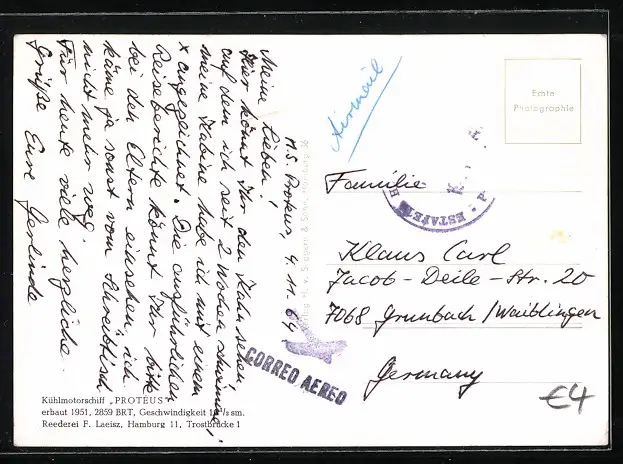 M.S. Proteus, 4.11.64
Meine Lieben!
Hier könnt Ihr den Kahn sehen
auf dem ich seit 2 Wochen schwimme,
meine Kabine habe ich mit einem
x angezeichnet. Die ausführlichen
Reiseberichte könnt Ihr bitte
bei den Eltern einsehen, ich
käme ja sonst vom Schreibtisch
nicht mehr weg.
Für heute viele herzliche
Grüße Eure Gerlinde
Airmail
Echte
Photographie
ESTAFETA
Familie
Klaus Carl
Jacob-Deile-Str. 20
7068 Grunbach/Waiblingen
Germany
CORREO AEREO
€4
Kühlmotorschiff „PROTEUS"
erbaut 1951, 2859 BRT, Geschwindigkeit sm.
Reederei F. Laeisz, Hamburg 11, Trostbrücke 1